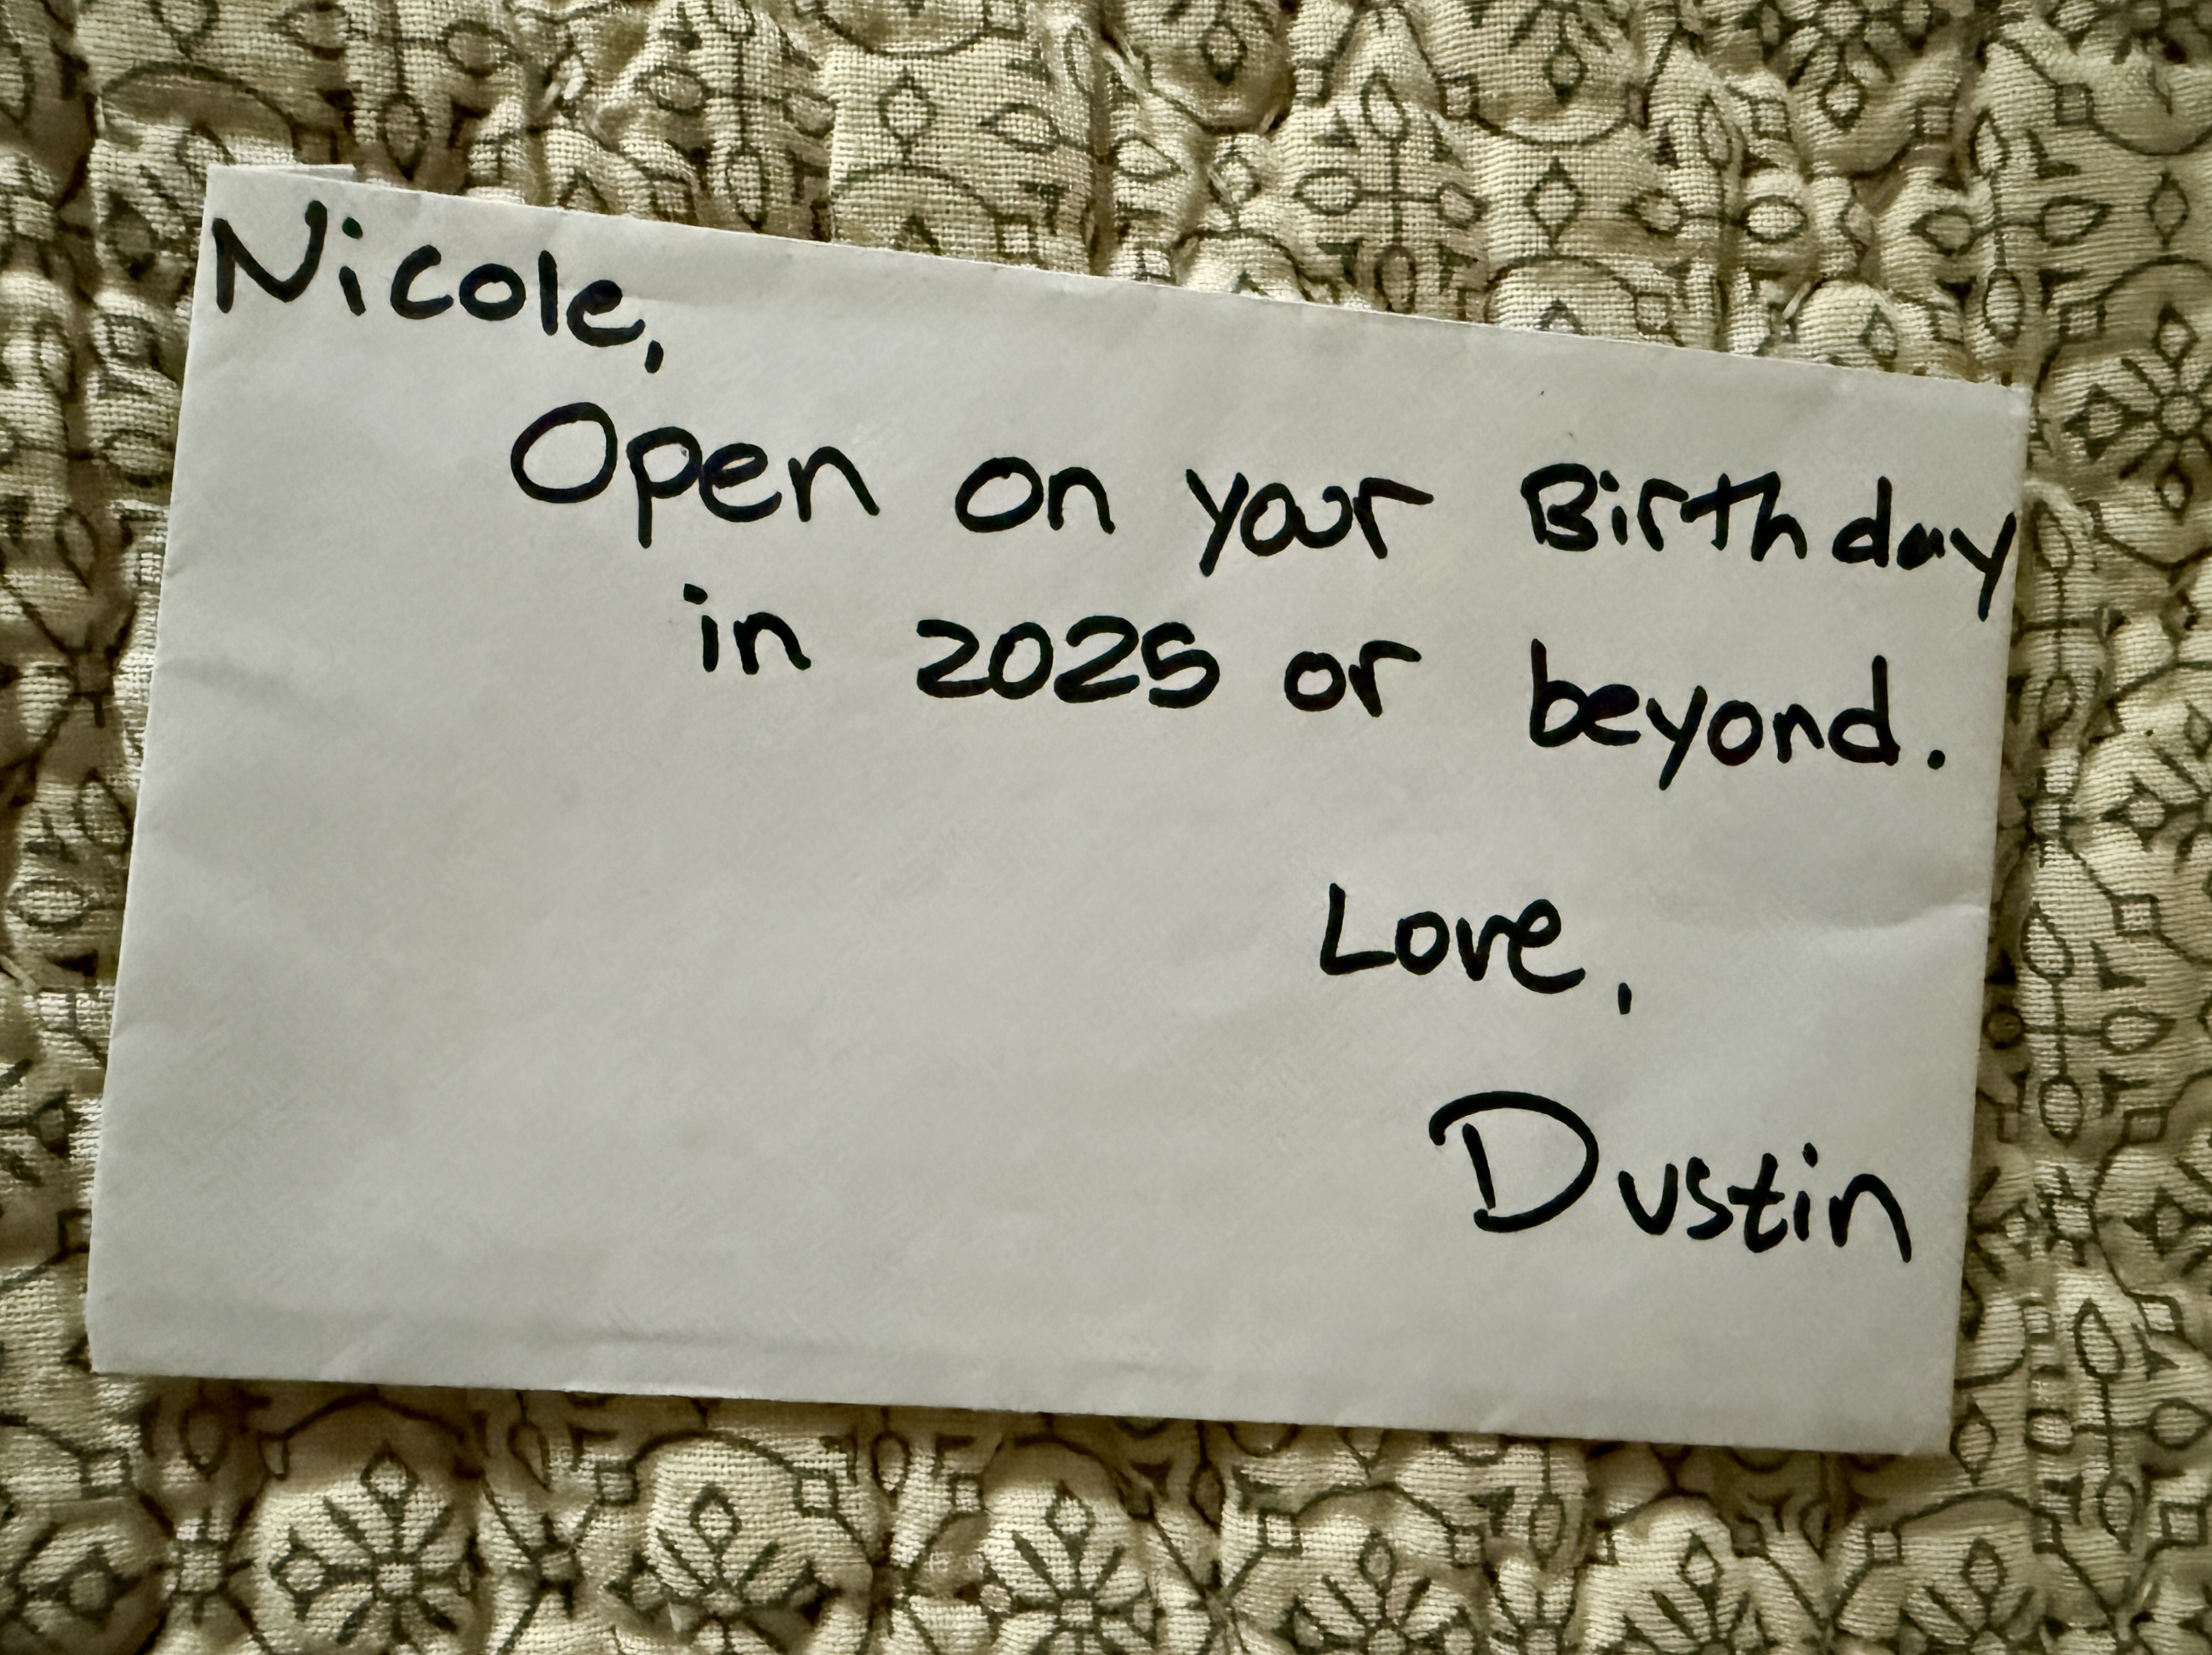 Nicole,
Open on your Birthday
in 2025 or beyond.
Love,
Dustin